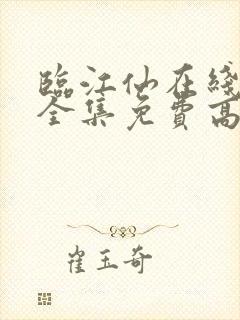 臨江仙在綫
全集免費高
崔玉奇